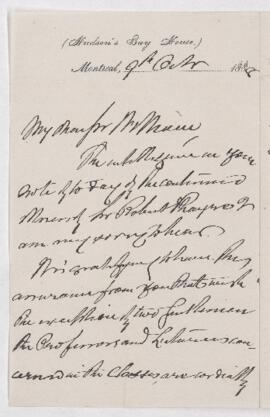 (Hudson's Bay House.)
Montreal, 9th Octr 188
My dear
The intelligence in your
note of to day of the continued
illness of Sir Robert
am very sorry to hear
It is gratifying to have the
assurance from you that with
the exception of two gentlemen
the Professors and Lecturers con
cerned in the Classes are cordially